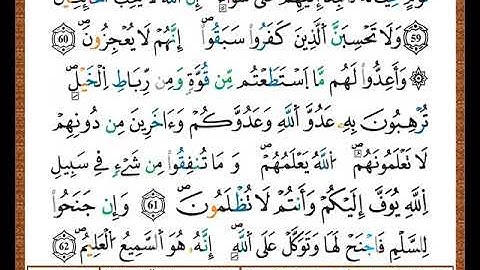 ٥٩ وَلَا تَحْسِبَنَّ ٱلَّذِينَ كَفَرُوا۟ سَبَقُوٓا۟ إِنَّهُمْ لَا يُعْجِزُونَ ٦٠
۞ وَأَعِدُّوا۟ لَهُم مَّا ٱسْتَطَعْتُم مِّن قُوَّةٍ وَمِن رِّبَاطِ ٱلْخَيْلِ
تُرْهِبُونَ بِهِۦ عَدُوَّ ٱللَّهِ وَعَدُوَّكُمْ وَءَاخَرِينَ مِن دُونِهِمْ
لَا تَعْلَمُونَهُمُ ٱللَّهُ يَعْلَمُهُمْ وَمَا تُنفِقُوا۟ مِن شَىْءٍ فِى سَبِيلِ
ٱللَّهِ يُوَفَّ إِلَيْكُمْ وَأَنتُمْ لَا تُظْلَمُونَ ٦١ وَإِن جَنَحُوا۟
لِلسَّلْمِ فَٱجْنَحْ لَهَا وَتَوَكَّلْ عَلَى ٱللَّهِ إِنَّهُۥ هُوَ ٱلسَّمِيعُ ٱلْعَلِيمُ ٦٢